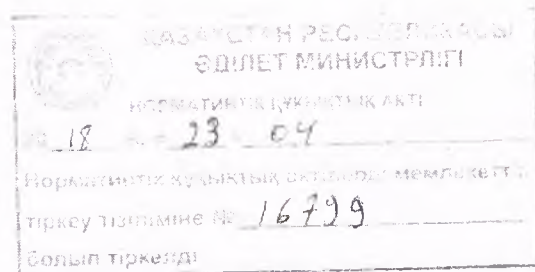 ҚАЗАҚСТАН РЕСПУБЛИКАСЫ
ӘДІЛЕТ МИНИСТРЛІГІ
НОРМАТИВТІК ҚҰҚЫҚТЫҚ АКТІ
20 18 ж. « 23 » 04
Нормативтік құқықтық актілерді мемлекеттік
тіркеу тізіліміне № 16799
болып тіркелді